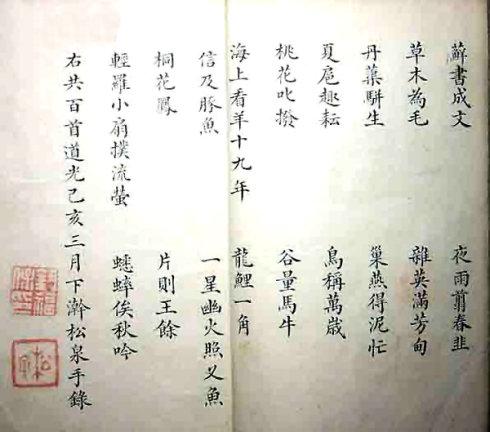 蘚書成文 夜雨剪春韭
草木為毛 雜英滿芳甸
丹藥駢生 巢燕得泥忙
夏扈趣耘 鳥稱萬歲
桃花叱撥 谷量馬牛
海上看羊十九年 龍鯉一角
信及豚魚 一星幽火照叉魚
桐花鳳 片則王餘
輕羅小扇撲流螢 蟋蟀俟秋吟
右共百首道光己亥三月下澣松泉手錄